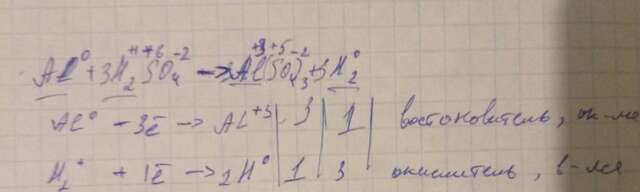 Al⁰ + 3H₂⁺¹S⁺⁶O₄⁻² → Al⁺³(S⁺⁵O₄⁻²)₃ + 3H₂⁰
Al⁰ - 3ē → Al⁺³ | 3 | 1 | востоновитель, ок-
H₂⁺ + 1ē → 2H⁰ | 1 | 3 окислитель, в-лся